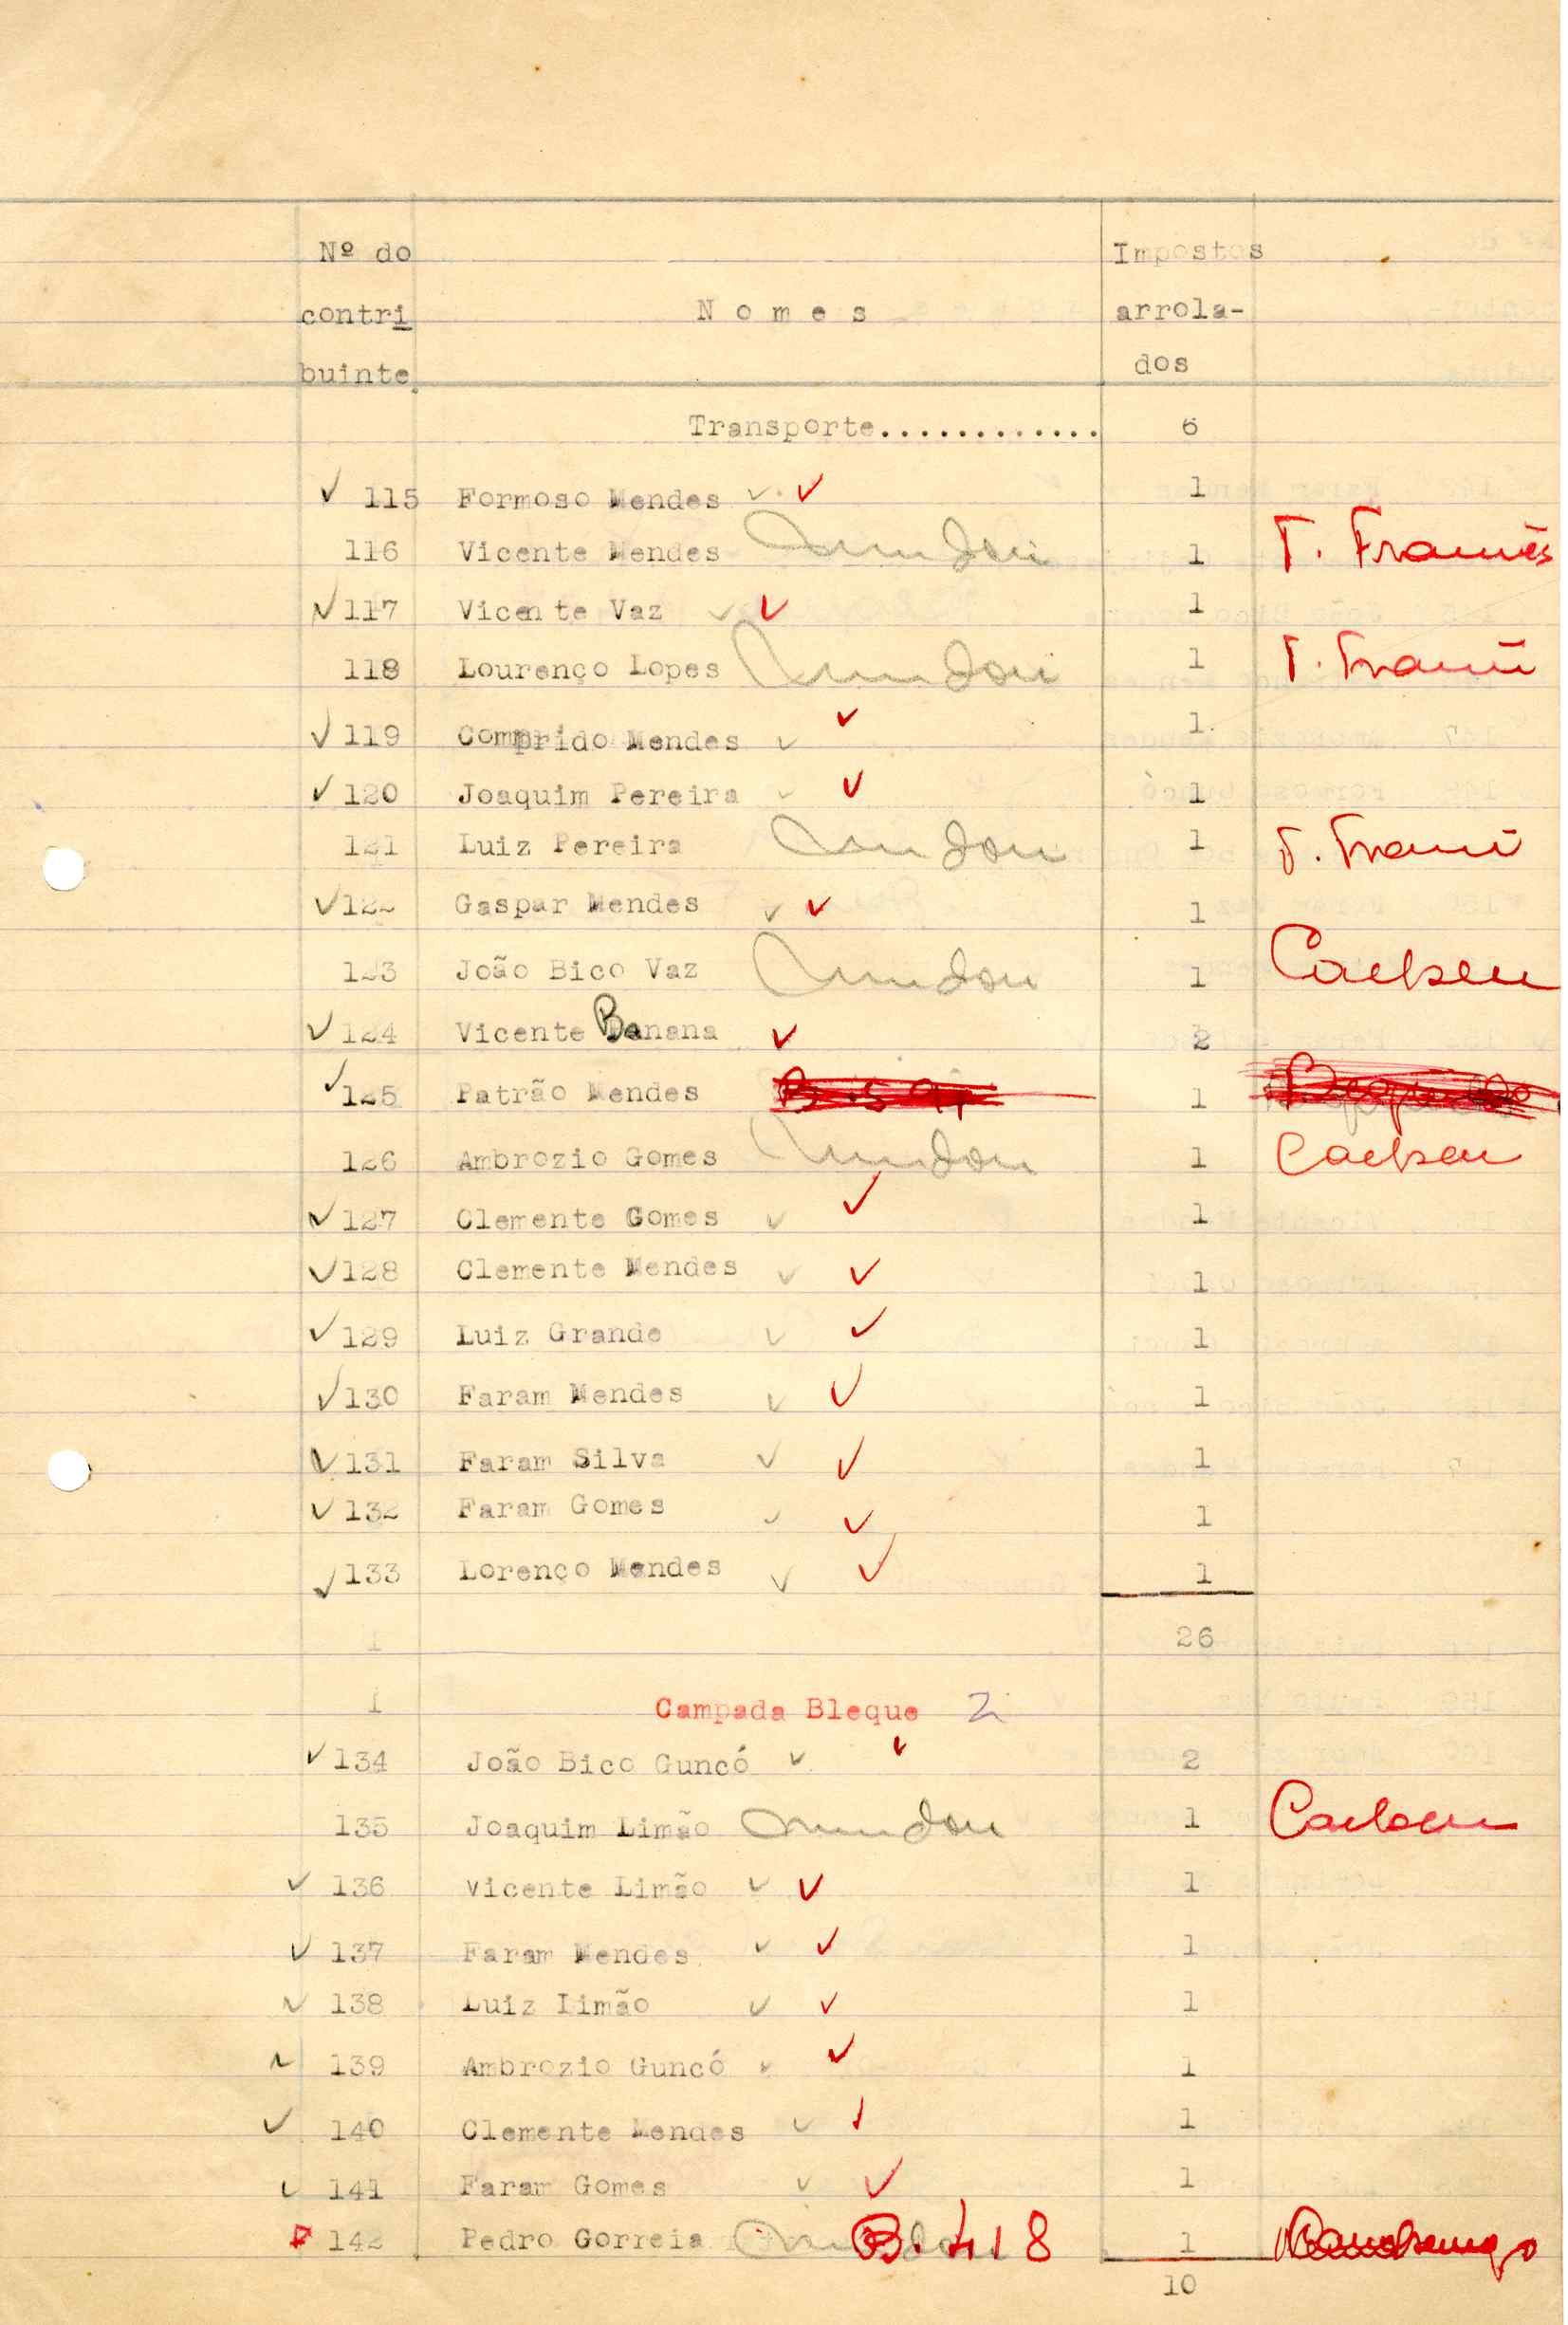 Nº do
contri
buinte
N o m e s
Impostos
arrola-
dos
Transporte............ 6
115 Formoso Mendes 1
116 Vicente Mendes Mudou 1 T. Francês
117 Vicente Vaz 1
118 Lourenço Lopes Mudou 1 T.
119 Comprido Mendes 1
120 Joaquim Pereira 1
121 Luiz Pereira Mudou 1 T.
122 Gaspar Mendes 1
123 João Bico Vaz Mudou 1
124 Vicente Banana 2
125 Patrão Mendes 1
126 Ambrozio Gomes Mudou 1
127 Clemente Gomes 1
128 Clemente Mendes 1
129 Luiz Grande 1
130 Faram Mendes 1
131 Faram Silva 1
132 Faram Gomes 1
133 Lorenço Mendes 1
26
Campada Bleque 2
134 João Bico Guncó 2
135 Joaquim Limão Mudou 1
136 Vicente Limão 1
137 Faram Mendes 1
138 Luiz Limão 1
139 Ambrozio Guncó 1
140 Clemente Mendes 1
141 Faram Gomes 1
142 Pedro Gorreia Mudou B. 418 1
10